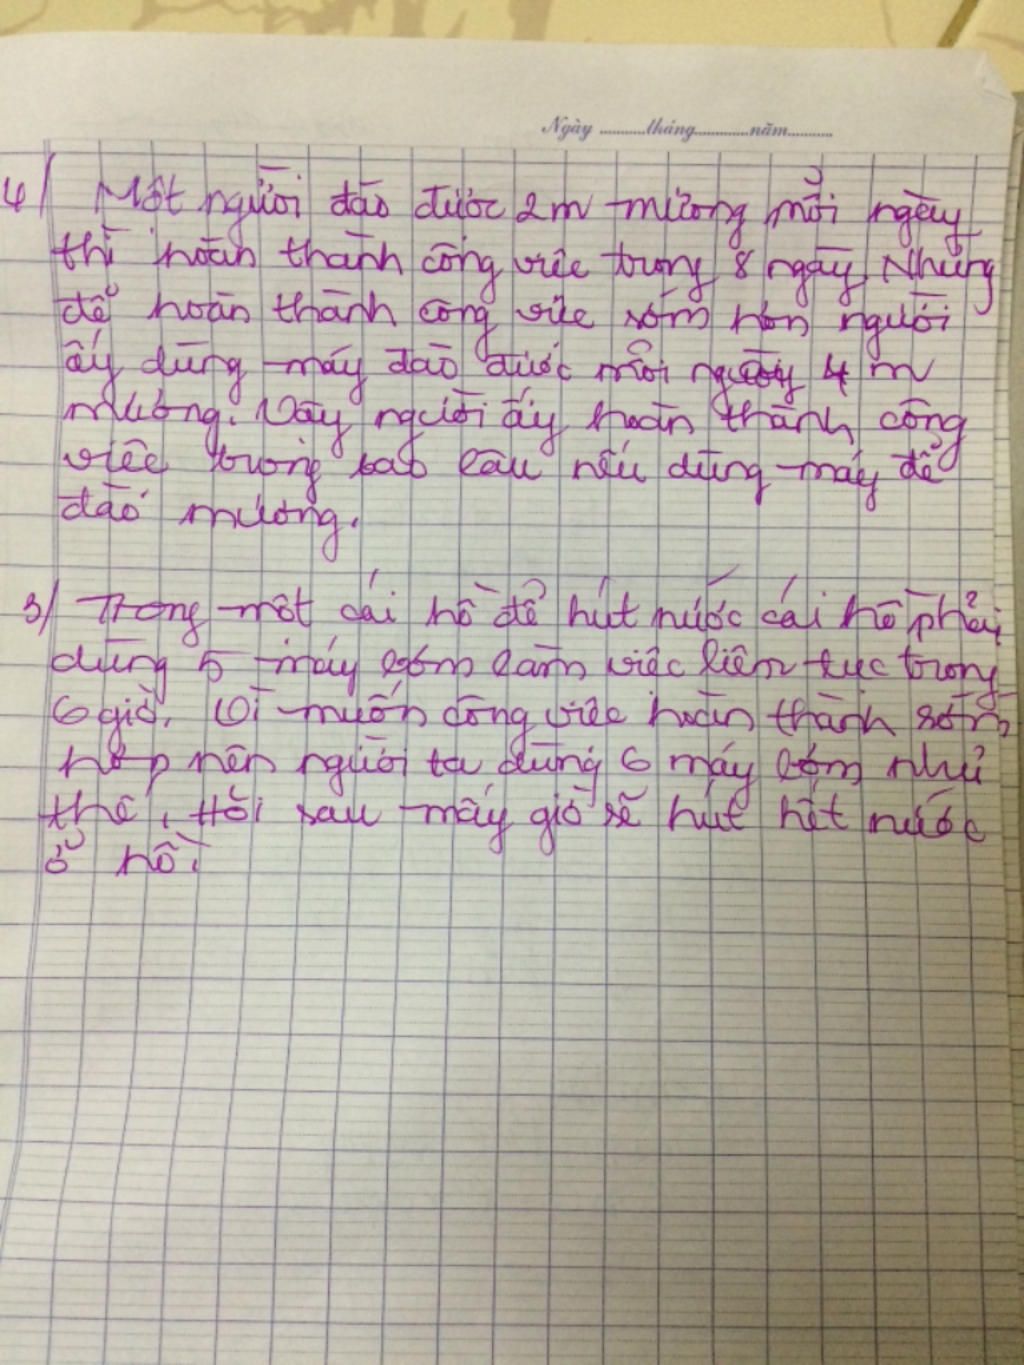 Ngày ...........tháng.............năm...........
4/ Một người đào được 2m mương mỗi ngày
thì hoàn thành công việc trong 8 ngày. Nhưng
để hoàn thành công việc sớm hơn người
ấy dùng máy đào được mỗi ngày 4 m
mương. Vậy người ấy hoàn thành công
việc trong bao lâu nếu dùng máy để
đào mương.
3/ Trong một cái hồ để hút nước cái hồ phải
dùng 5 máy bơm làm việc liên tục trong
6 giờ. Vì muốn công việc hoàn thành sớm
hơn nên người ta dùng 6 máy bơm như
thế. Hỏi sau mấy giờ sẽ hút hết nước
ở hồ?